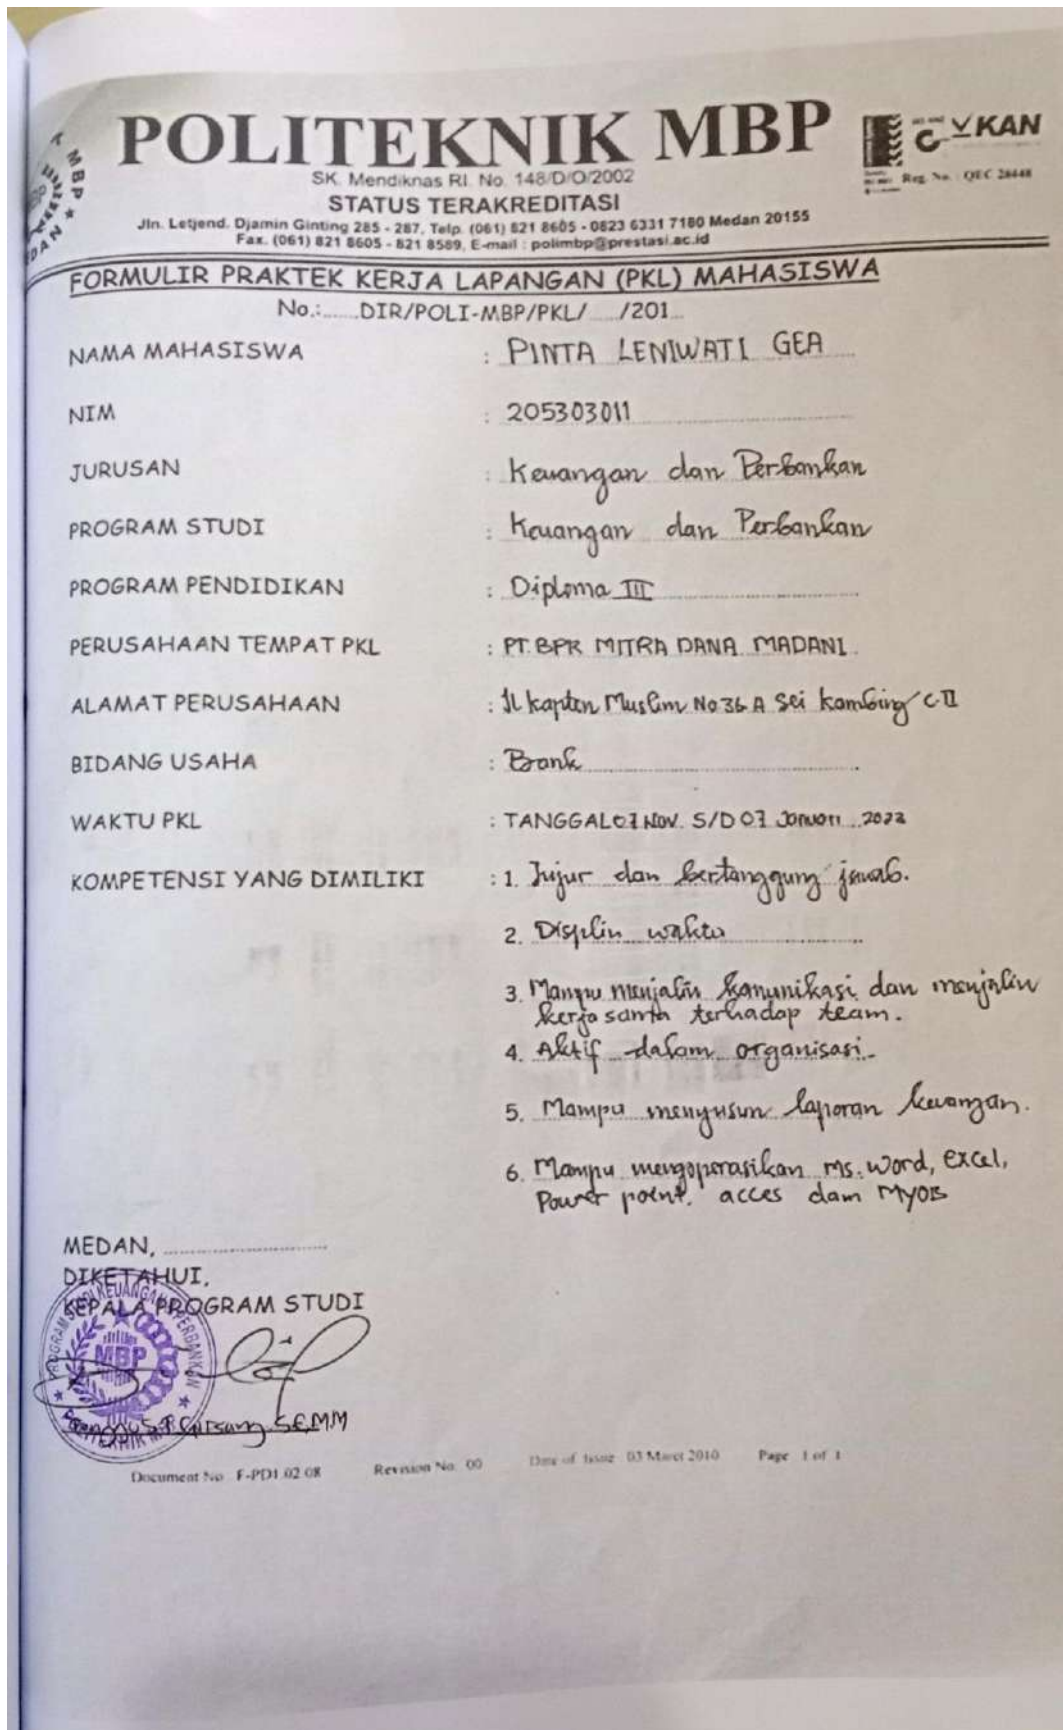 POLITEKNIK MBP
SK. Mendiknas RI. No. 148/D/O/2002
STATUS TERAKREDITASI
Jln. Letjend. Djamin Ginting 285 - 287, Telp. (061) 821 8605 - 0823 6331 7180 Medan 20155
Fax. (061) 821 8605 - 821 8589, E-mail : polimbp@prestasi.ac.id
KAN
Reg. No. : QEC 28448
FORMULIR PRAKTEK KERJA LAPANGAN (PKL) MAHASISWA
No.:......DIR/POLI-MBP/PKL/...../201...
NAMA MAHASISWA : PINTA LENIWATI GEA
NIM : 205303011
JURUSAN : Keuangan dan Perbankan
PROGRAM STUDI : Keuangan dan Perbankan
PROGRAM PENDIDIKAN : Diploma III
PERUSAHAAN TEMPAT PKL : PT. BPR MITRA DANA MADANI
ALAMAT PERUSAHAAN : Jl kapten Muslim No 36 A Sei kambing C II
BIDANG USAHA : Bank
WAKTU PKL : TANGGAL 07 Nov. S/D 07 Januari 2022
KOMPETENSI YANG DIMILIKI : 1. Jujur dan bertanggung jawab.
2. Displin waktu
3. Mampu menjalin komunikasi dan menjalin
kerja sama terhadap team.
4. Aktif dalam organisasi.
5. Mampu menyusun laporan keuangan.
6. Mampu mengoperasikan ms. word, excel,
Power point. acces dam MYOB
MEDAN, ..............................
DIKETAHUI,
KEPALA PROGRAM STUDI
PROGRAM STUDI KEUANGAN PERBANKAN
MBP
POLITEKNIK MBP
SE.MM
Document No F-PD1.02.08 Revision No: 00 Date of Issue 03 Maret 2010 Page 1 of 1